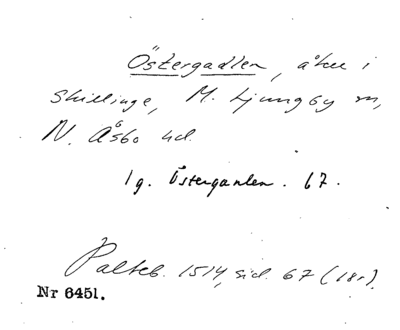 Östergadlen, åker i
Skillinge, M. Ljungby sn,
N. Åsbo hd.
1 g. Österganlen. 67.
Palteb. 1514, sid. 67 (18r).
Nr 6451.